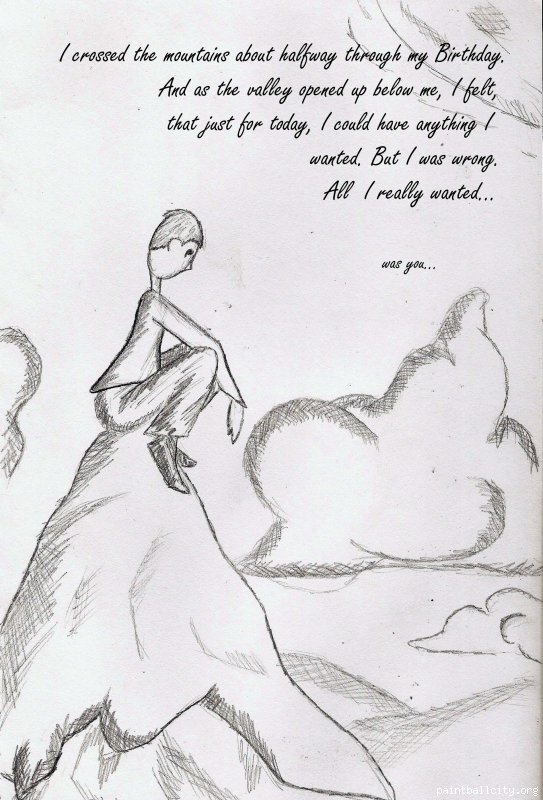 I crossed the mountains about halfway through my Birthday.
And as the valley opened up below me, I felt,
that just for today, I could have anything I
wanted. But I was wrong.
All I really wanted...
was you...
paintballcity.org